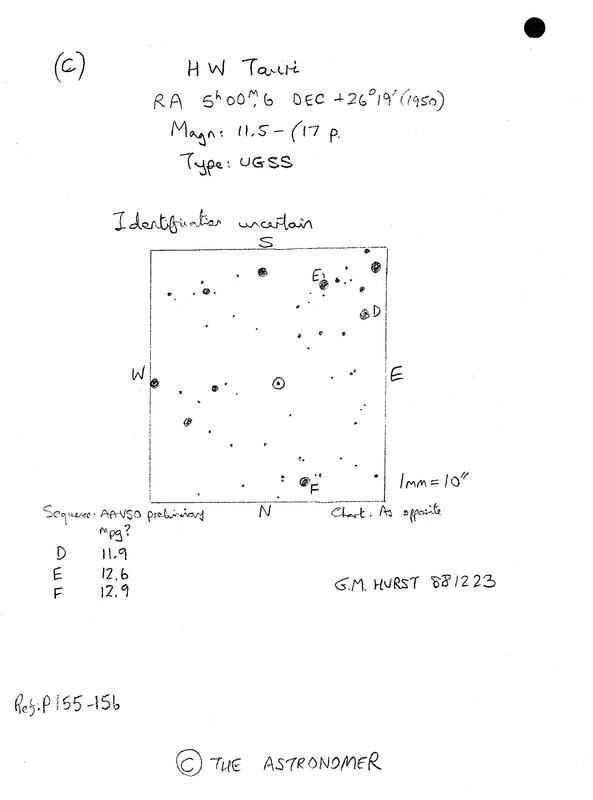 (C)
HW Tauri
RA 5ʰ00ᵐ.6 DEC +26°19'(1950)
Magn: 11.5 - (17 p.
Type: UGSS
Identification uncertain
S
E
D
W
E
F
1mm = 10"
N
Sequence: AAVSO preliminary
Chart: As opposite
mpg?
D 11.9
E 12.6
F 12.9
G.M. HURST 881223
Ref: P155-156
© THE ASTRONOMER